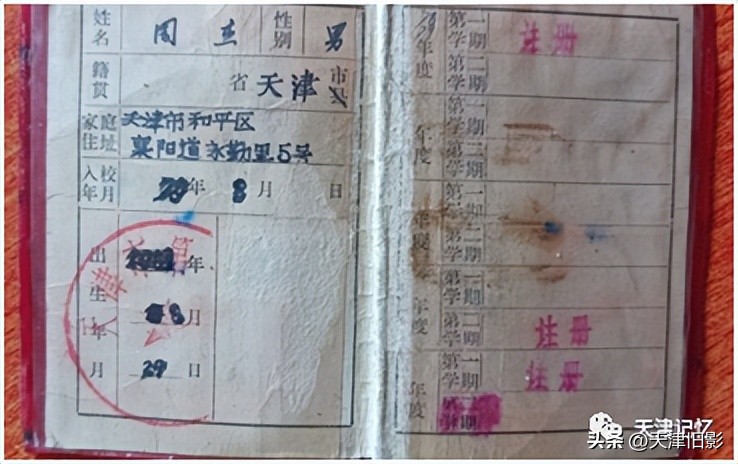 姓名 周 性别 男
籍贯 省 天津 市
家庭住址 天津市和平区
襄阳道永勤里5号
入校年月 年 8 月 日
出生年月 年
8 月
29 日
年度 第一学期 注册
第二学期
年度 第一学期
第二学期
年度 第一学期
第二学期
年度 第一学期
第二学期 注册
年度 第一学期 注册
第二学期
天津记忆
头条 @天津旧影